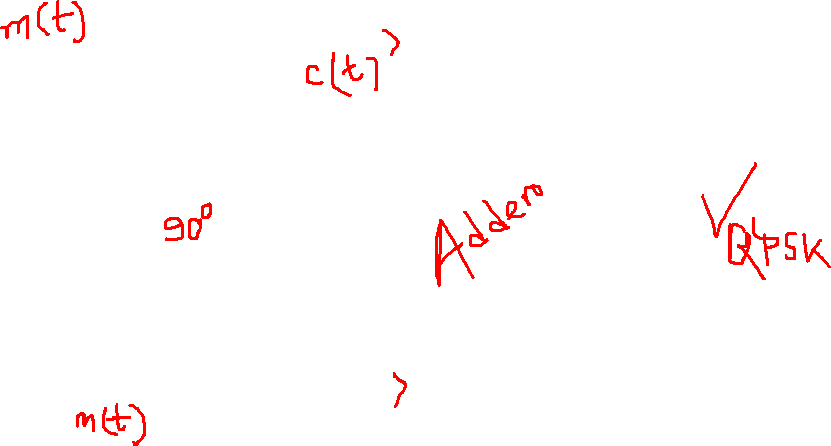 m(t)
c(t)
90°
Adder
QPSK
m(t)